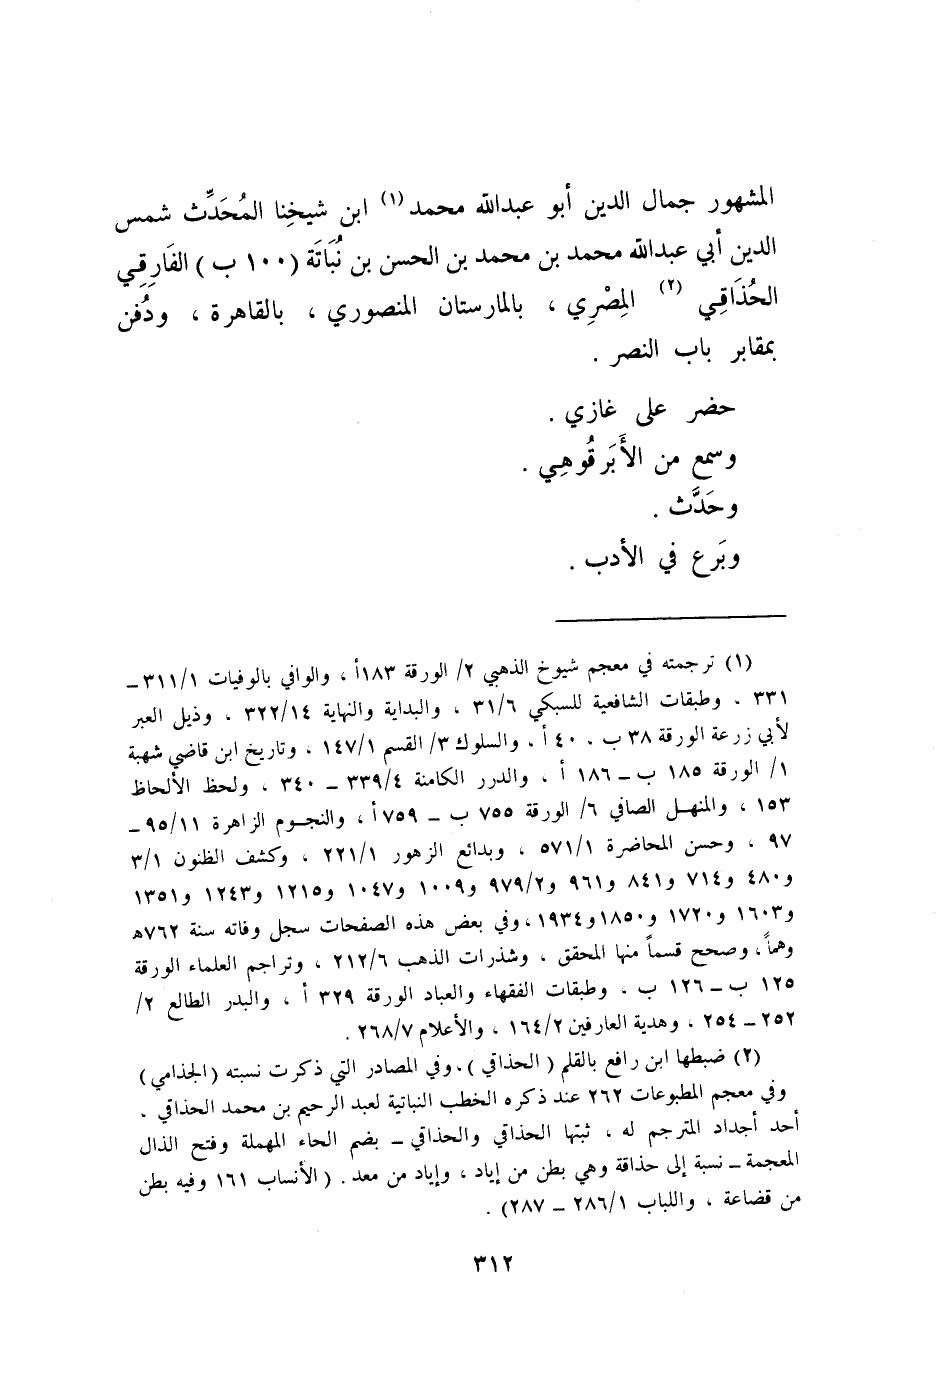 المشهور جمال الدين أبو عبدالله محمد (١) ابن شيخِنا المُحَدِّث شمس
الدين أبي عبدالله محمد بن محمد بن الحسن بن نُبَاتَة (١٠٠ ب) الفَارِقِي
الحُذَاقِي (٢) المِصْرِي ، بالمارستان المنصوري ، بالقاهرة ، ودُفن
بمقابر باب النصر .
حضر على غازي .
وسمع من الأَبَرقُوهِي .
وحَدَّث .
وبَرع في الأدب .
(١) ترجمته في معجم شيوخ الذهبي ٢/ الورقة ١٨٣أ ، والوافي بالوفيات ٣١١/١ ـ
٣٣١ . وطبقات الشافعية للسبكي ٣١/٦ ، والبداية والنهاية ٣٢٢/١٤ ، وذيل العبر
لأبي زرعة الورقة ٣٨ ب . ٤٠ أ . والسلوك ٣/ القسم ١٤٧/١ ، وتاريخ ابن قاضي شهبة
١/ الورقة ١٨٥ ب ـ ١٨٦ أ ، والدرر الكامنة ٣٣٩/٤ ـ ٣٤٠ ، ولحظ الألحاظ
١٥٣ ، والمنهل الصافي ٦/ الورقة ٧٥٥ ب ـ ٧٥٩ أ ، والنجوم الزاهرة ٩٥/١١ ـ
٩٧ ، وحسن المحاضرة ٥٧١/١ ، وبدائع الزهور ٢٢١/١ ، وكشف الظنون ٣/١
و٤٨٠ و٧١٤ و٨٤١ و٩٦١ و٩٧٩/٢ و١٠٠٩ و١٠٤٧ و١٢١٥ و١٢٤٣ و١٣٥١
و١٦٠٣ و١٧٢٠ و١٨٥٠ و١٩٣٤ ، وفي بعض هذه الصفحات سجل وفاته سنة ٧٦٢ه
وهماً ، وصحح قسماً منها المحقق ، وشذرات الذهب ٢١٢/٦ ، وتراجم العلماء الورقة
١٢٥ ب ـ ١٢٦ ب ، وطبقات الفقهاء والعباد الورقة ٣٢٩ أ ، والبدر الطالع ٢/
٢٥٢ ـ ٢٥٤ ، وهدية العارفين ١٦٤/٢ ، والأعلام ٢٦٨/٧ .
(٢) ضبطها ابن رافع بالقلم ( الحذاقي ) . وفي المصادر التي ذكرت نسبته (الجذامي)
وفي معجم المطبوعات ٢٦٢ عند ذكره الخطب النباتية لعبد الرحيم بن محمد الحذاقي .
أحد أجداد المترجم له ، ثبتها الحذاقي والحذاقي ـ بضم الحاء المهملة وفتح الذال
المعجمة ـ نسبة إلى حذاقة وهي بطن من إياد ، وإياد من معد . ( الأنساب ١٦١ وفيه بطن
من قضاعة ، واللباب ٢٨٦/١ ـ ٢٨٧) .
٣١٢